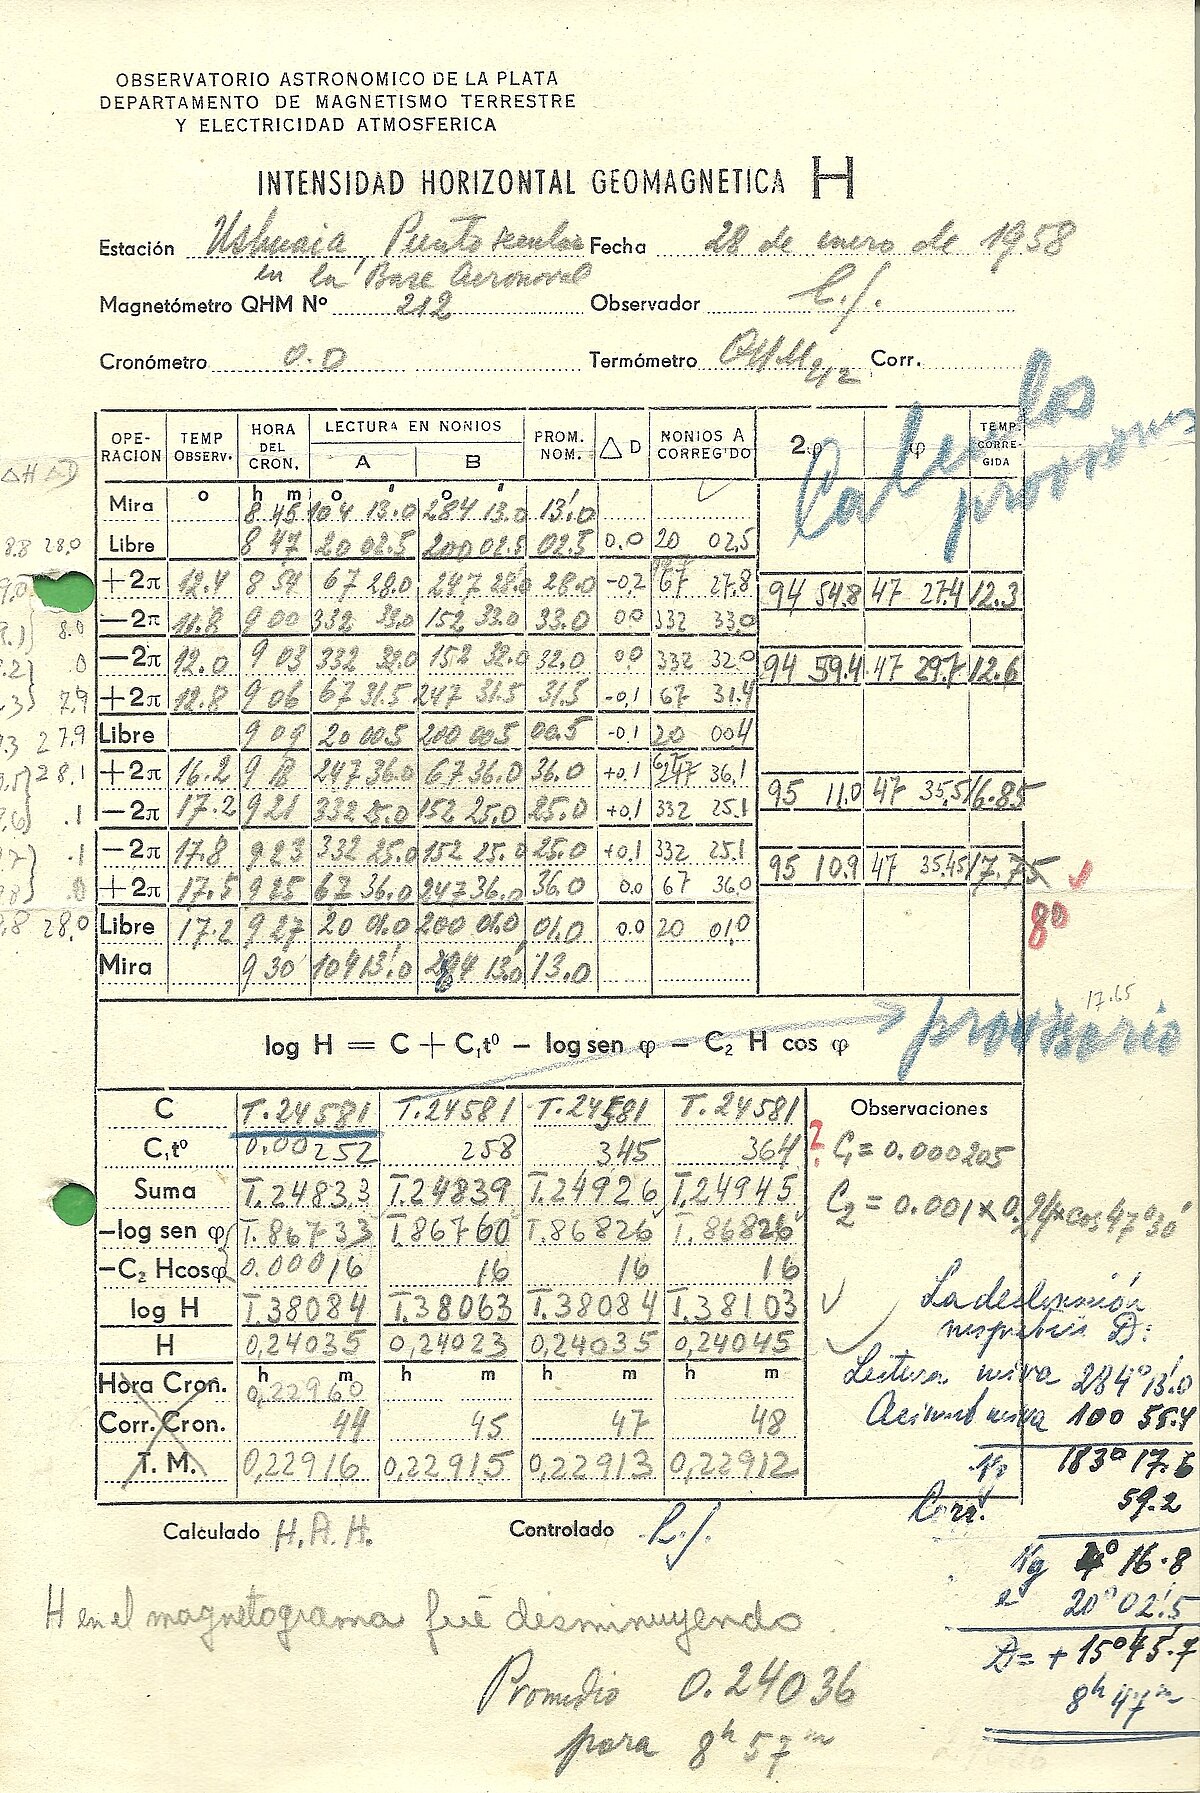 OBSERVATORIO ASTRONOMICO DE LA PLATA
DEPARTAMENTO DE MAGNETISMO TERRESTRE
Y ELECTRICIDAD ATMOSFERICA
INTENSIDAD HORIZONTAL GEOMAGNETICA H
Estación Ushuaia Punto secular Fecha 28 de enero de 1958
en la Base Aeronaval
Magnetómetro QHM Nº 212 Observador
Cronómetro O.D Termómetro QHM 212 Corr.
Calculos provisorios
OPERACION TEMP OBSERV. HORA DEL CRON. LECTURA EN NONIOS A B PROM. NOM. △ D NONIOS A CORREGIDO 2φ φ TEMP. CORREGIDA
△H △D
Mira o h m 8 45 104 13.0 284 13.0 13.0
8.8 28.0 Libre 8 47 20 02.5 200 02.5 02.5 0.0 20 02,5
+2π 12.4 8 54 67 28.0 247 28.0 28.0 -0.2 67 27.8 94 54.8 47 27.4 12.3
8.0 −2π 11.8 9 00 332 33.0 152 33.0 33.0 0.0 332 33.0
.0 −2π 12.0 9 03 332 32.0 152 32.0 32.0 0.0 332 32.0 94 59.4 47 29.7 12.6
7.9 +2π 12.8 9 06 67 31.5 247 31.5 31.5 -0.1 67 31.4
27.9 Libre 9 09 20 00.5 200 00.5 00.5 -0.1 20 00.4
28.1 +2π 16.2 9 18 247 36.0 67 36.0 36.0 +0.1 67 36.1 95 11.0 47 35.5 16.85
.1 −2π 17.2 9 21 332 25.0 152 25.0 25.0 +0.1 332 25.1
.1 −2π 17.8 9 23 332 25.0 152 25.0 25.0 +0.1 332 25.1 95 10.9 47 35.45 17.75
.0 +2π 17.5 9 25 67 36.0 247 36.0 36.0 0.0 67 36.0
28.0 Libre 17.2 9 27 20 01.0 200 01.0 01.0 0.0 20 01.0
Mira 9 30 104 13.0 284 13.0 13.0
8º
17.65
log H = C + C₁tº − log sen φ − C₂ H cos φ
provisorio
C T.24581 T.24581 T.24581 T.24581 Observaciones
C₁tº 0.00252 258 345 364 ? C₁ = 0.000205
Suma T.24833 T.24839 T.24926 T.24945
C₂ = 0.001 × 0.24 × cos 47º30'
−log sen φ T.86733 T.86760 T.86826 T.86826
−C₂ Hcosφ 0.00016 16 16 16
log H T.38084 T.38063 T.38084 T.38103
H 0,24035 0,24023 0,24035 0,24045
Hora Cron. h m 0,22960 h m h m h m
Corr. Cron. 44 45 47 48
T. M. 0,22916 0,22915 0,22913 0,22912
La declinación
magnética D:
Lectura mira 284º 13.0
Acimut mira 100 55.4
183º 17.6
Corr. 59.2
Ng 4º 16.8
20º 02.5
D = + 15º 45.7
8h 47m
Calculado H.A.H. Controlado
H en el magnetograma fué desminuyendo
Promedio 0.24036
para 8h 57m